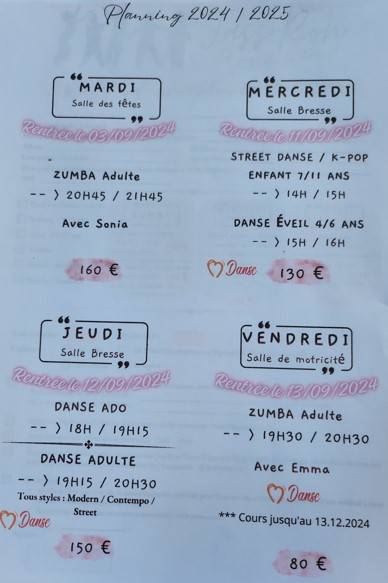 Planning 2024 / 2025
MARDI
Salle des fêtes
Rentrée le 03/09/2024
ZUMBA Adulte
-- > 20H45 / 21H45
Avec Sonia
160 €
MERCREDI
Salle Bresse
Rentrée le 11/09/2024
STREET DANSE / K-POP
ENFANT 7/11 ANS
-- > 14H / 15H
DANSE ÉVEIL 4/6 ANS
-- > 15H / 16H
Danse
130 €
JEUDI
Salle Bresse
Rentrée le 12/09/2024
DANSE ADO
-- > 18H / 19H15
DANSE ADULTE
-- > 19H15 / 20H30
Tous styles : Modern / Contempo /
Street
Danse
150 €
VENDREDI
Salle de motricité
Rentrée le 13/09/2024
ZUMBA Adulte
-- > 19H30 / 20H30
Avec Emma
Danse
*** Cours jusqu'au 13.12.2024
80 €